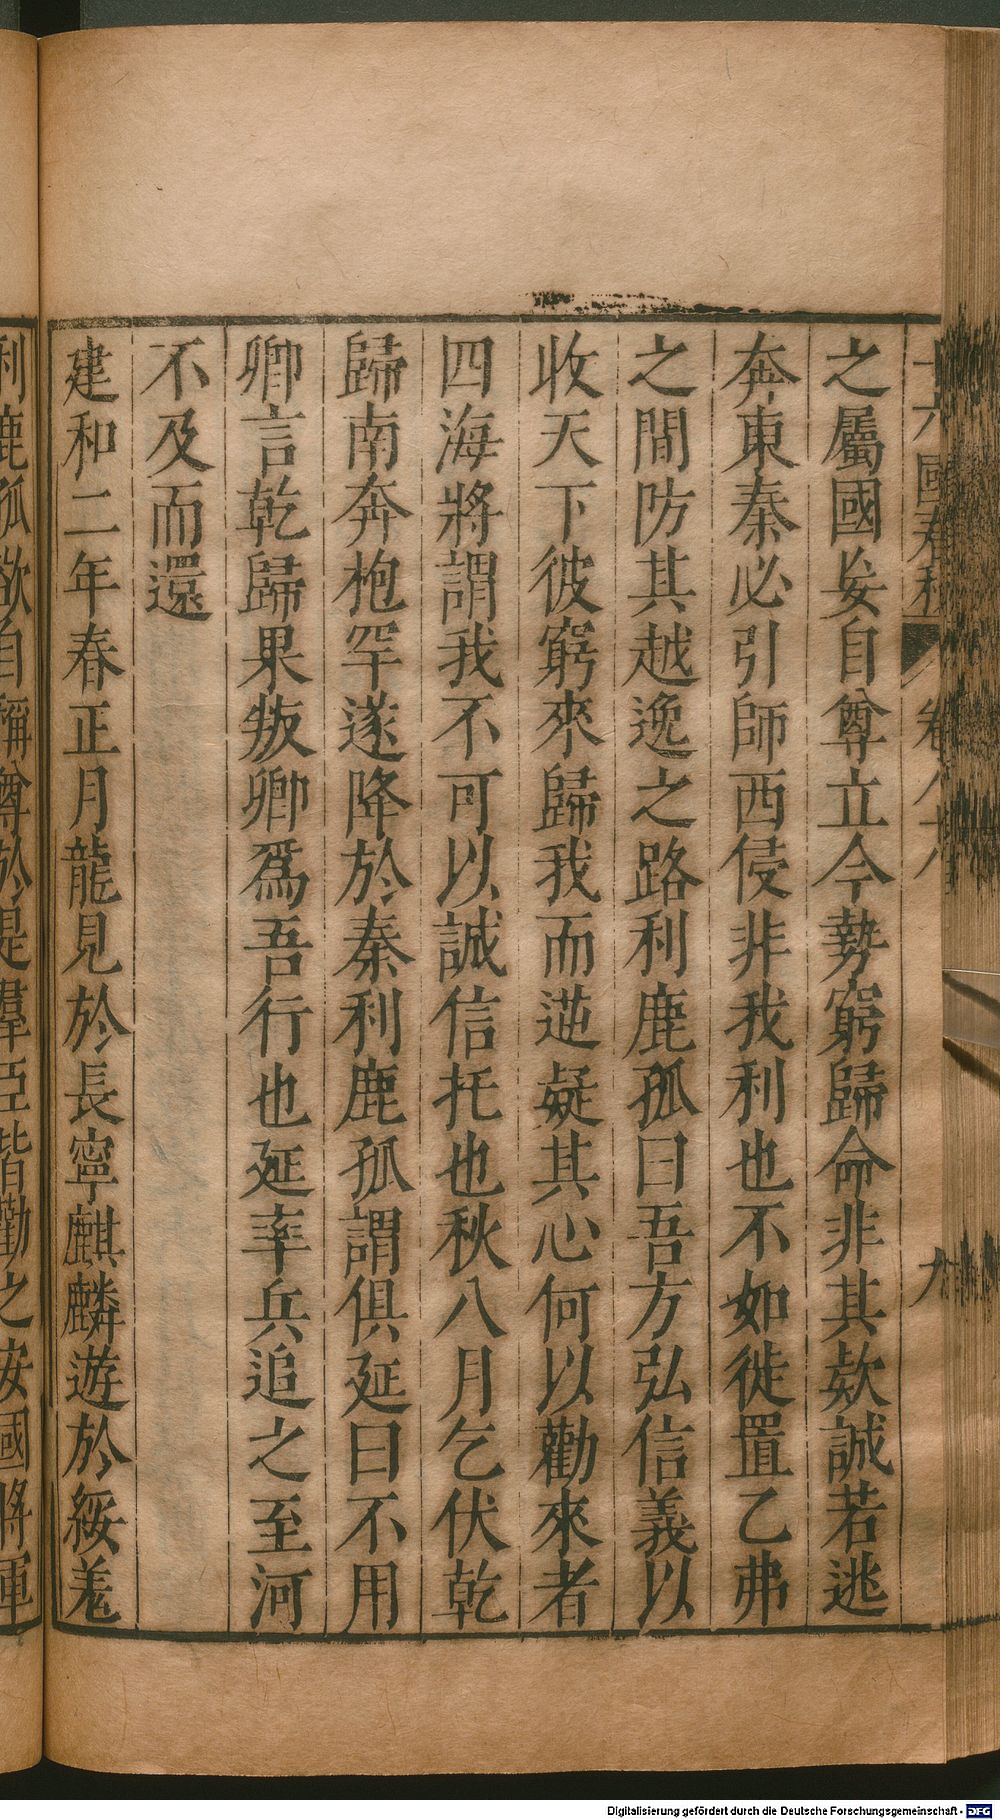 十六國春秋 卷八十八 九
之屬國妄自尊立今勢窮歸命非其欵誠若逃
奔東秦必引師西侵非我利也不如徙置乙弗
之間防其越逸之路利鹿孤曰吾方弘信義以
收天下彼窮來歸我而逆疑其心何以勸來者
四海將謂我不可以誠信托也秋八月乞伏乾
歸南奔枹罕遂降於秦利鹿孤謂俱延曰不用
卿言乾歸果叛卿爲吾行也延率兵追之至河
不及而還
建和二年春正月龍見於長寧麒麟遊於綏羌
利鹿孤欲自稱尊於是羣臣皆勸之安國將軍
Digitalisierung gefördert durch die Deutsche Forschungsgemeinschaft - DFG